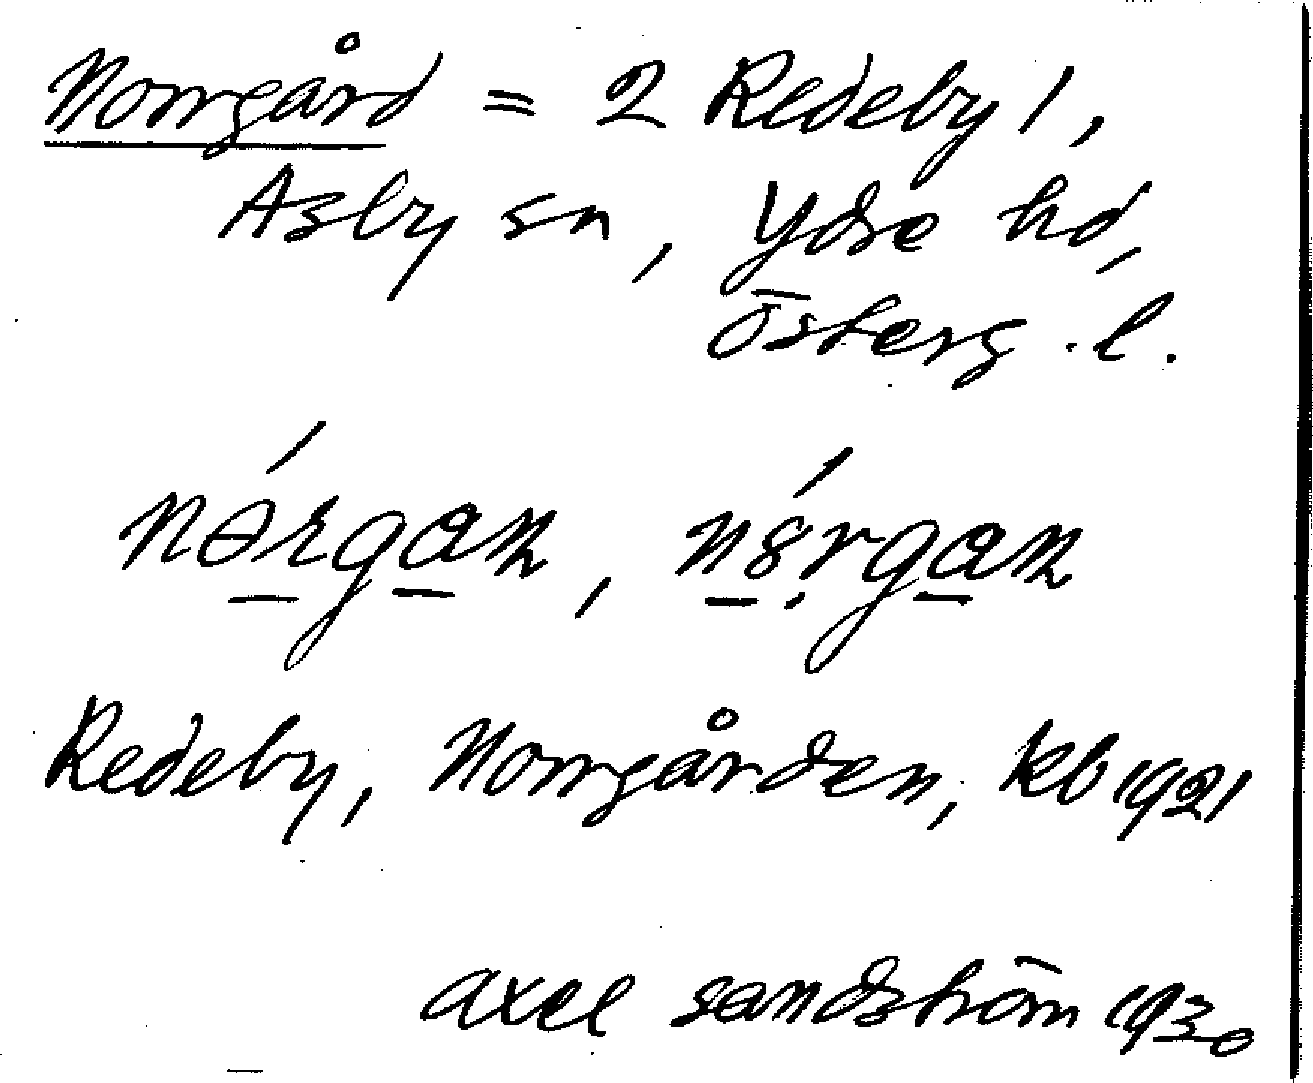 Norrgård = 2 Redeby 1,
Asby sn, Ydre hd,
Österg. l.
nǝ́rgan, n8́rgan
Redeby, Norrgården, kb 1921
Axel Sandström 1930